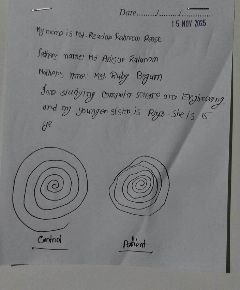 Date............/............/............
15 NOV 2025
My name is Md. Readus Rahman
Father name: Md
Rahman
Mother's name: Mst. Ruby Begum
I am studying Computer Science and Engineering
and my younger sister is
She is
Control
Patient